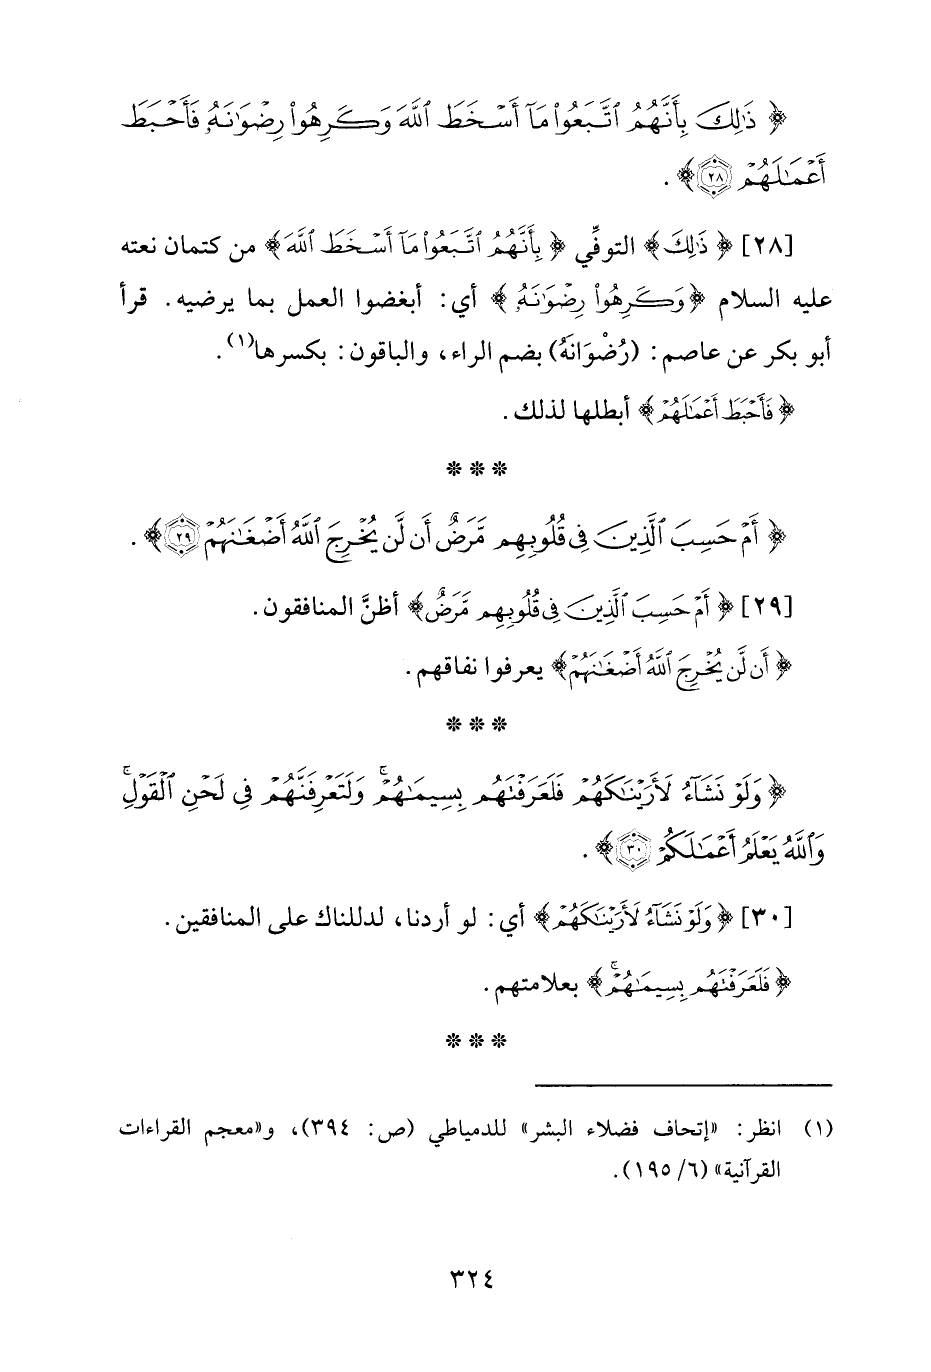 ﴿ ذَٰلِكَ بِأَنَّهُمُ ٱتَّبَعُوا۟ مَآ أَسْخَطَ ٱللَّهَ وَكَرِهُوا۟ رِضْوَٰنَهُۥ فَأَحْبَطَ
أَعْمَٰلَهُمْ ٢٨ ﴾ .
[٢٨] ﴿ ذَٰلِكَ ﴾ التوفِّي ﴿ بِأَنَّهُمُ ٱتَّبَعُوا۟ مَآ أَسْخَطَ ٱللَّهَ ﴾ من كتمان نعته
عليه السلام ﴿ وَكَرِهُوا۟ رِضْوَٰنَهُۥ ﴾ أي: أبغضوا العمل بما يرضيه. قرأ
أبو بكر عن عاصم: (رُضْوَانَهُ) بضم الراء، والباقون: بكسرها(١).
﴿ فَأَحْبَطَ أَعْمَٰلَهُمْ ﴾ أبطلها لذلك.
❊ ❊ ❊
﴿ أَمْ حَسِبَ ٱلَّذِينَ فِى قُلُوبِهِم مَّرَضٌ أَن لَّن يُخْرِجَ ٱللَّهُ أَضْغَٰنَهُمْ ٢٩ ﴾ .
[٢٩] ﴿ أَمْ حَسِبَ ٱلَّذِينَ فِى قُلُوبِهِم مَّرَضٌ ﴾ أظنَّ المنافقون.
﴿ أَن لَّن يُخْرِجَ ٱللَّهُ أَضْغَٰنَهُمْ ﴾ يعرفوا نفاقهم.
❊ ❊ ❊
﴿ وَلَوْ نَشَآءُ لَأَرَيْنَٰكَهُمْ فَلَعَرَفْتَهُم بِسِيمَٰهُمْ ۚ وَلَتَعْرِفَنَّهُمْ فِى لَحْنِ ٱلْقَوْلِ ۚ
وَٱللَّهُ يَعْلَمُ أَعْمَٰلَكُمْ ٣٠ ﴾ .
[٣٠] ﴿ وَلَوْ نَشَآءُ لَأَرَيْنَٰكَهُمْ ﴾ أي: لو أردنا، لدللناك على المنافقين.
﴿ فَلَعَرَفْتَهُم بِسِيمَٰهُمْ ۚ ﴾ بعلامتهم.
❊ ❊ ❊
(١) انظر: «إتحاف فضلاء البشر» للدمياطي (ص: ٣٩٤)، و«معجم القراءات
القرآنية» (٦/ ١٩٥).
٣٢٤